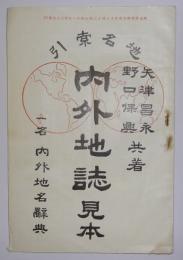 地名索引
矢津昌永
野口保興
共著
内外地誌見本
一名 内外地名辭典